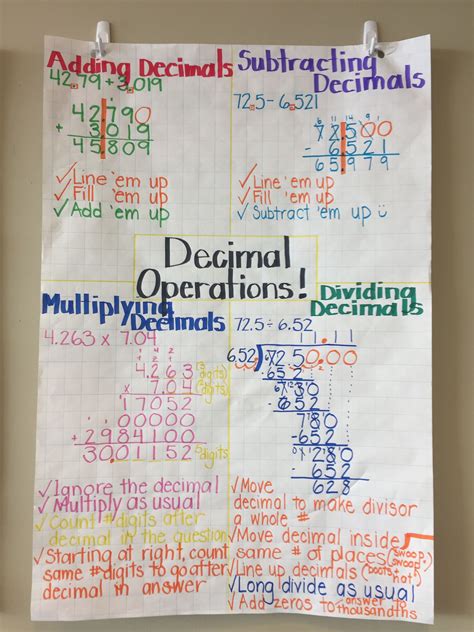 Adding Decimals
42.79 + 3.019
42.790
+ 3.019
45.809
✓Line 'em up
✓Fill 'em up
✓Add 'em up
Subtracting
Decimals
72.5 - 6.521
72.500
- 6.521
65.979
✓Line 'em up
✓Fill 'em up
✓Subtract 'em up
Decimal
Operations!
Multiplying
Decimals
4.263 x 7.04
4.263
x 7.04
17052
00000
+ 2984100
30.01152
✓Ignore the decimal
✓Multiply as usual
✓Count # digits after
decimal in the question
✓Starting at right, count
same # digits to go after
decimal in answer
Dividing
Decimals
72.5 ÷ 6.52
11.11
652 7250.00
- 652
730
- 652
780
- 652
1280
- 652
628
✓Move
decimal to make divisor
a whole #
✓Move decimal inside
same # of places (swoop, swoop)
✓Line up decimals
✓Long divide as usual
✓Add zeros to answer to thousandths